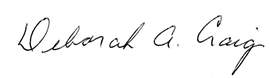 Deborah A. Craig